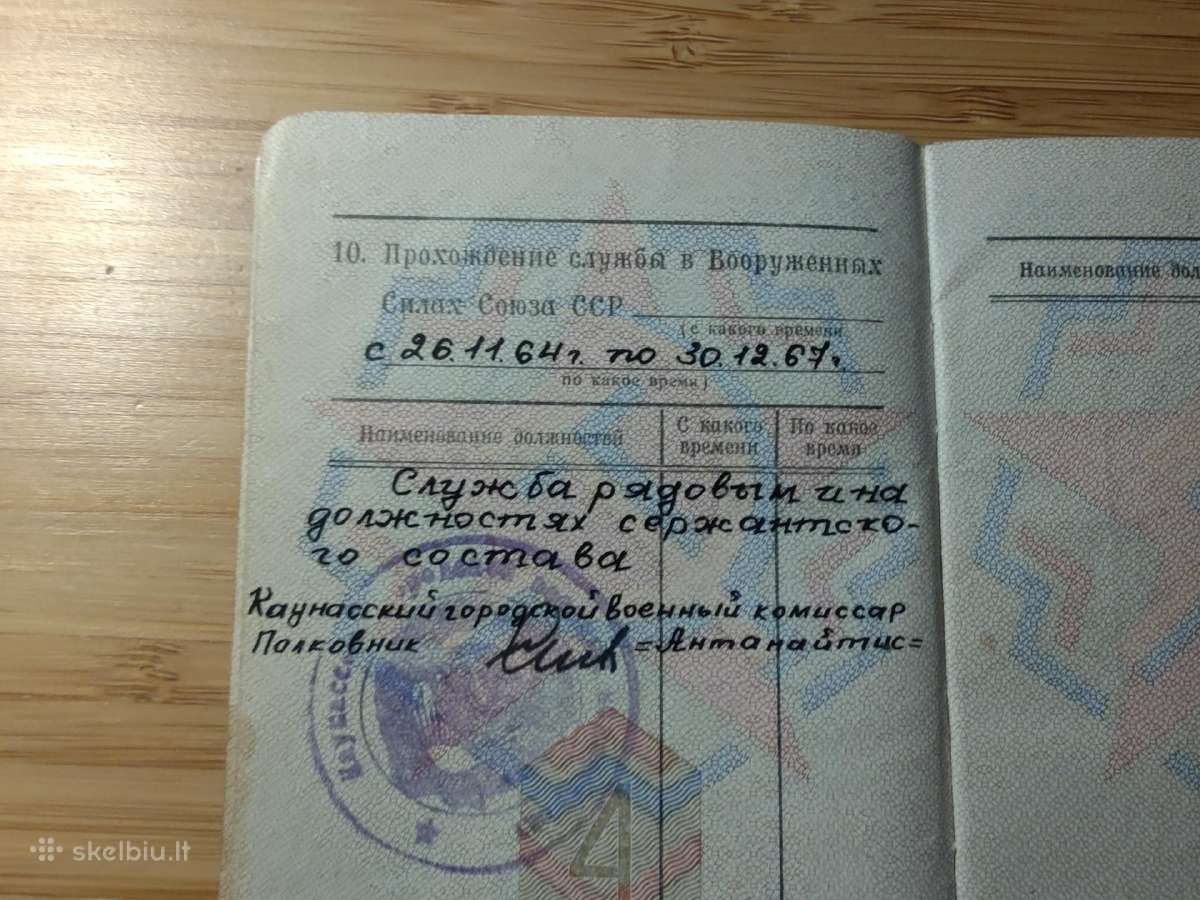 10. Прохождение службы в Вооруженных
Силах Союза ССР
(с какого времени
с 26.11.64г. по 30.12.67г.
по какое время)
Наименование должностей
С какого времени
По какое время
Служба рядовым и на
должностях сержантско-
го состава
Каунасский городской военный комиссар
Полковник =Антанайтис=
4
Наименование
skelbiu.lt